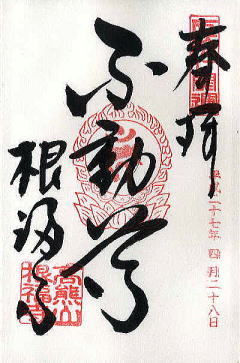 奉拝
平成二十七年 四月二十八日
不動尊
根福寺
高熊山
根福寺